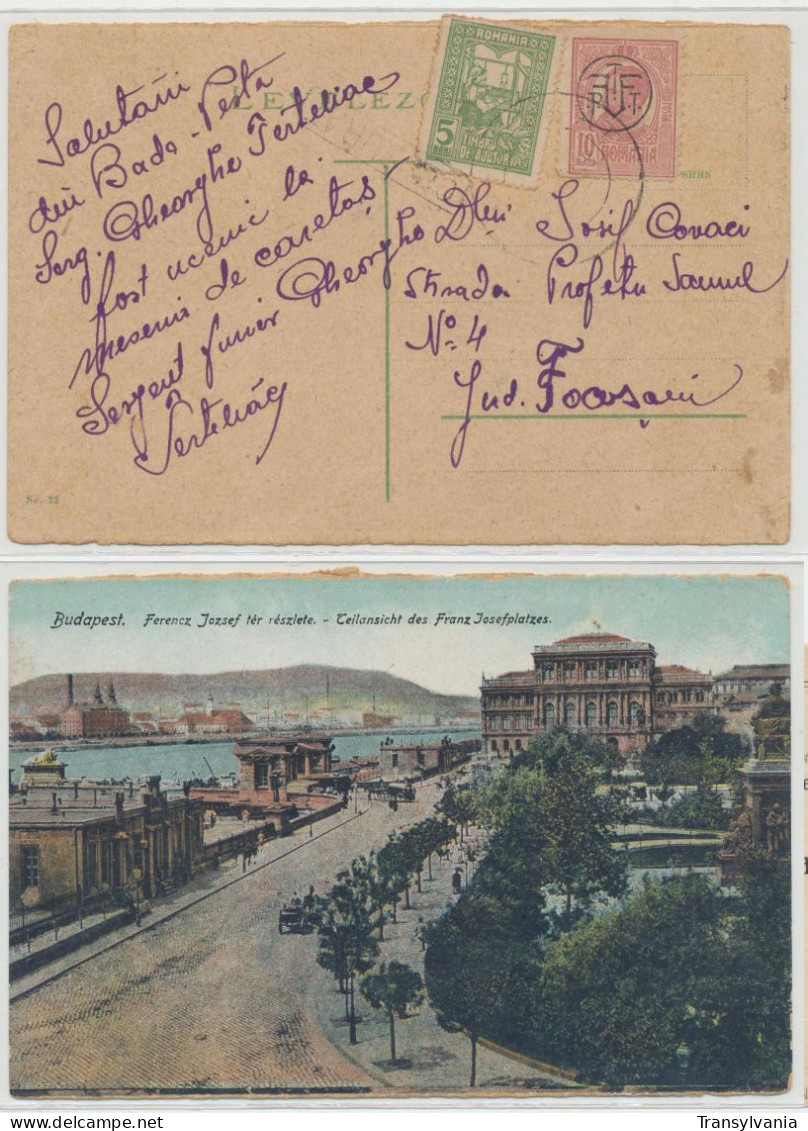 LEVELEZŐ
ROMANIA
5
BANI
TIMBRU
DE AJUTOR
P.T.T.
10
ROMANIA
Salutări
din Buda-Pesta
Serg. Gheorghe Terteliac
fost ucenic la
meserir de caretaș
Sergent furir Gheorghe
Terteliac
Dlui Iosif Covaci
Strada Profetu Samuil
No. 4
Jud. Focșani
No. 22
Budapest. Ferencz Jozsef tér részlete. - Teilansicht des Franz Josefplatzes.
Transylvania